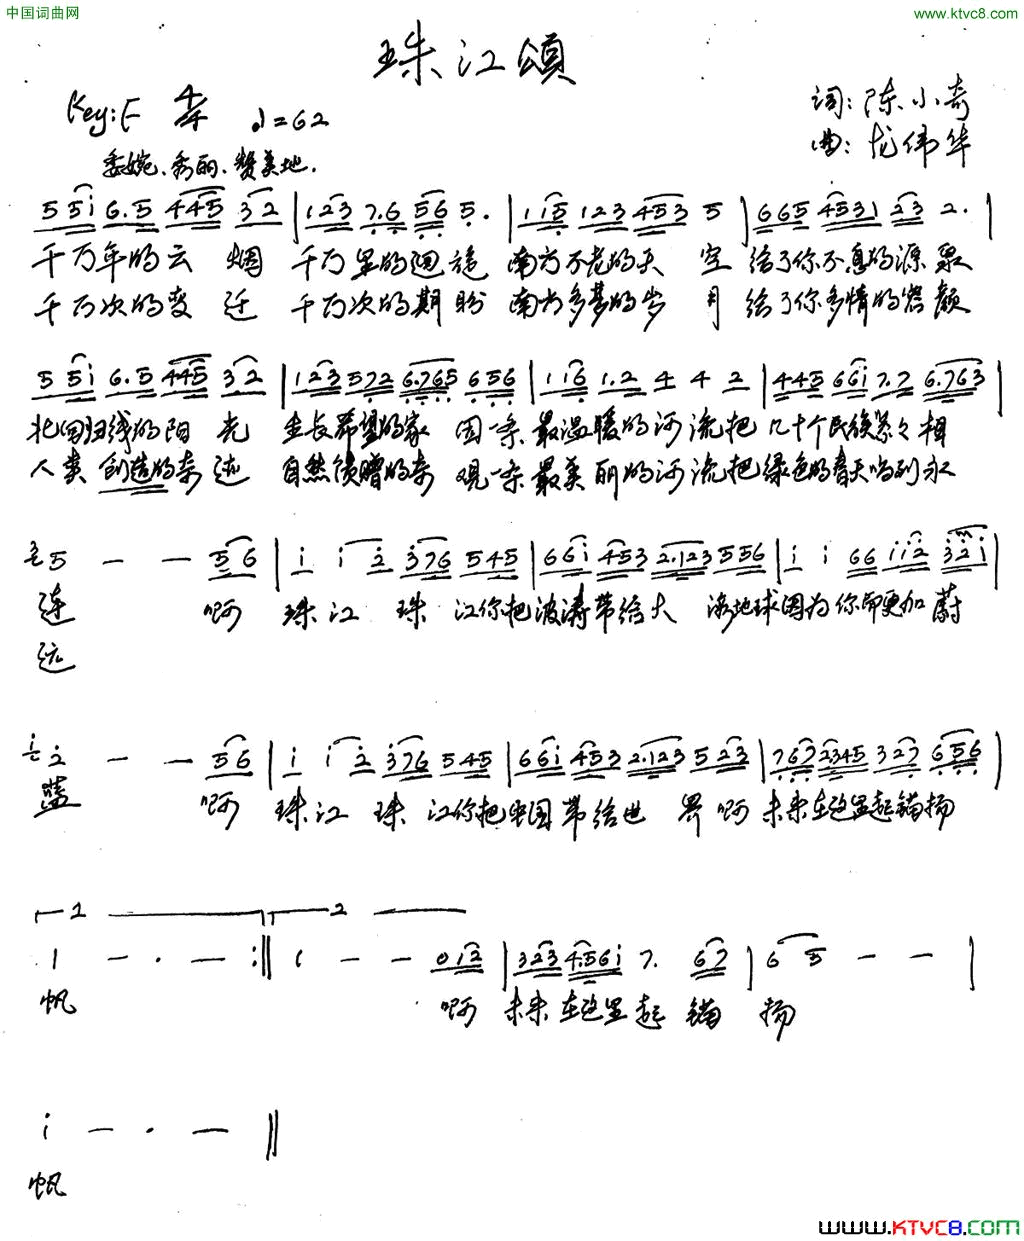 中国词曲网
www.ktvc8.com
珠江頌
Key:F 4/4 ♩=62
词:陈小奇
曲:龙伟华
委婉、秀丽、赞美地.
5 5 i 6.5 4 4 5 3 2 | 1 2 3 7.6 5 6 5. | 1 1 5 1 2 3 4 5 3 5 | 6 6 5 4 5 3 1 2 3 2. |
千万年的云 烟 千万里的迴旋 南方不老的天 空 给了你不息的源 泉
千万次的变 迁 千万次的期盼 南方多梦的岁 月 给了你多情的容颜
5 5 i 6.5 4 4 5 3 2 | 1 2 3 5 7 2 6.7 6 5 6 5 6 | 1 1 6 1.2 4 4 2 | 4 4 5 6 6 i 7.7 6.7 6 3 |
北回归线的阳 光 生长希望的家 园一条最温暖的河流把 几十个民族紧々相
人类 创造的奇 迹 自然馈赠的奇 观一条最美丽的河流把绿色的春天唱到永
3 5 — — 5 6 | i i 2 3 7 6 5 4 5 | 6 6 i 4 5 3 2.1 2 3 5 5 6 | i i 6 6 i i 2 3 2 i |
连 啊 珠江 珠 江你把波涛带给大 海地球因为你而更加蔚
远
i 2 — — 5 6 | i i 2 3 7 6 5 4 5 | 6 6 i 4 5 3 2.1 2 3 5 2 3 | 7 6 7 2 3 4 5 3 2 7 6 5 6 |
蓝 啊 珠江 珠 江你把中国带给世 界啊 未来在这里起锚扬
1 2
1 — . — :‖ 1 — — 0 1 2 | 3 2 3 4.5 6 i 7. 6 7 | 6 5 — — |
帆 啊 未来在这里起 锚 扬
i — . — ‖
帆
www.KTVC8.COM